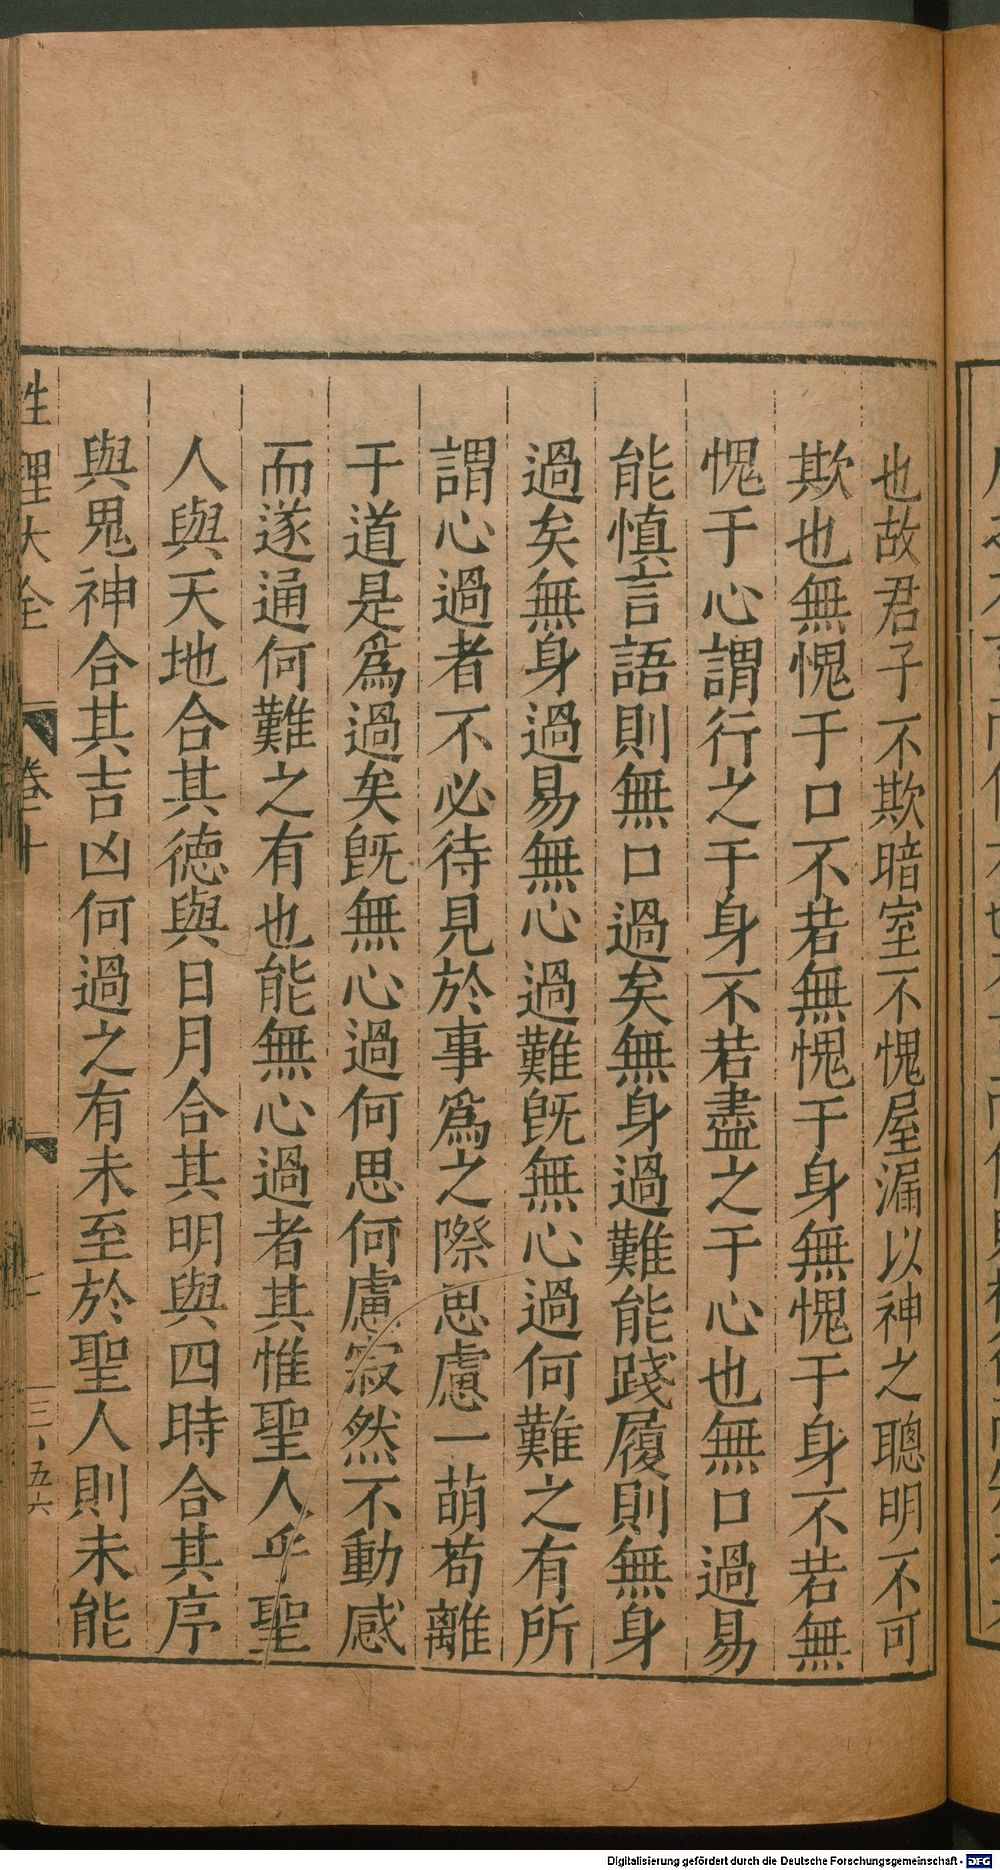 也故君子不欺暗室不愧屋漏以神之聰明不可
欺也無愧于口不若無愧于身無愧于身不若無
愧于心謂行之于身不若盡之于心也無口過易
能慎言語則無口過矣無身過難能踐履則無身
過矣無身過易無心過難旣無心過何難之有所
謂心過者不必待見於事爲之際思慮一萌苟離
于道是爲過矣旣無心過何思何慮寂然不動感
而遂通何難之有也能無心過者其惟聖人乎聖
人與天地合其德與日月合其明與四時合其序
與鬼神合其吉凶何過之有未至於聖人則未能
性理大全 卷十 七 三、五六
Digitalisierung gefördert durch die Deutsche Forschungsgemeinschaft - DFG